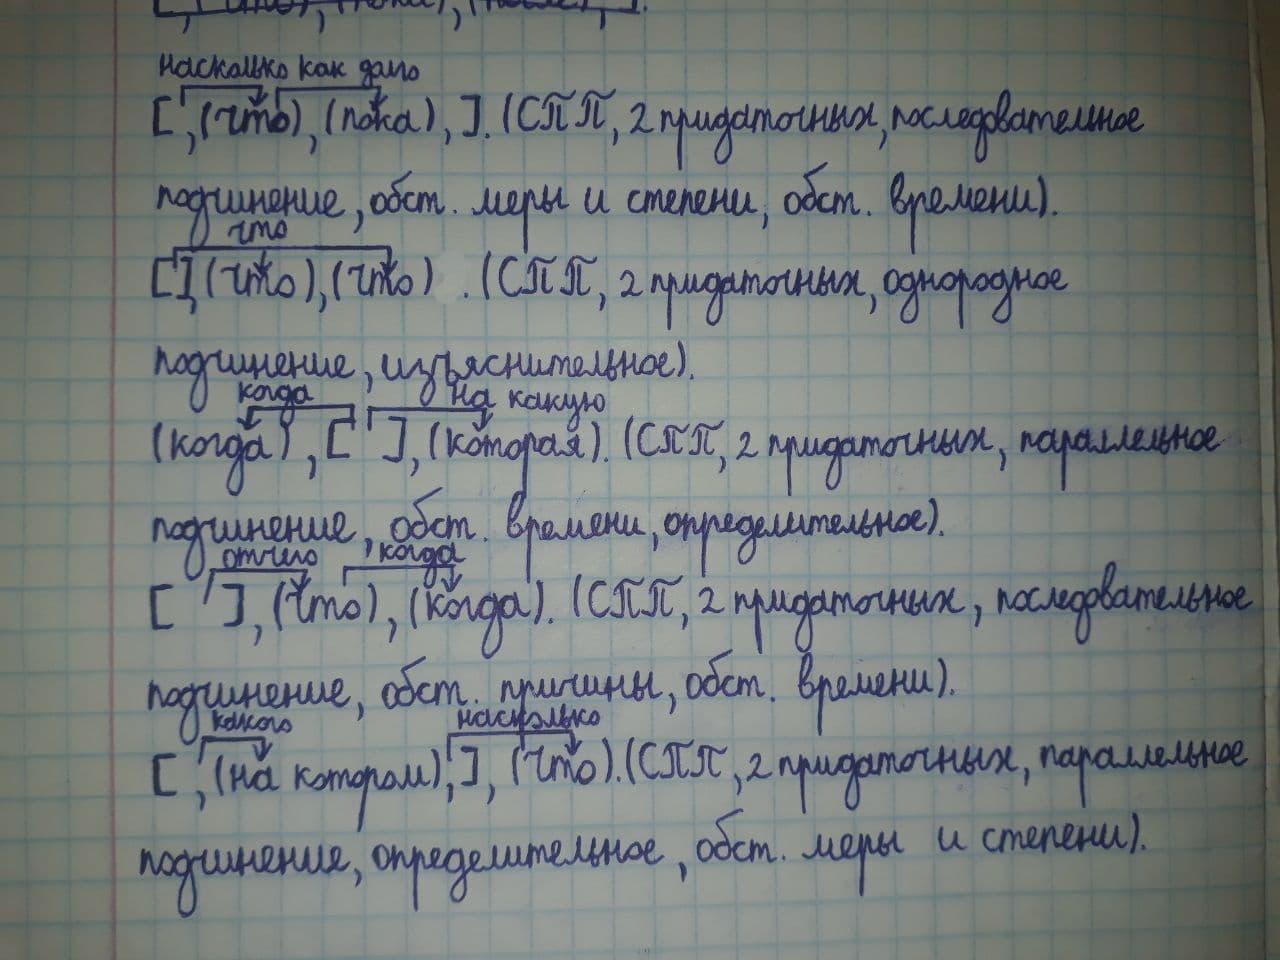 насколько как долго
[ ,(что), (пока), ]. (СПП, 2 придаточных, последовательное
подчинение, обст. меры и степени, обст. времени).
что
[ ], (что), (что) . (СПП, 2 придаточных, однородное
подчинение, изъяснительное).
когда на какую
(когда), [ ], (которая). (СПП, 2 придаточных, параллельное
подчинение, обст. времени, определительное).
отчего когда
[ ], (что), (когда). (СПП, 2 придаточных, последовательное
подчинение, обст. причины, обст. времени).
какого насколько
[ , (на котором), ], (что). (СПП, 2 придаточных, параллельное
подчинение, определительное, обст. меры и степени).